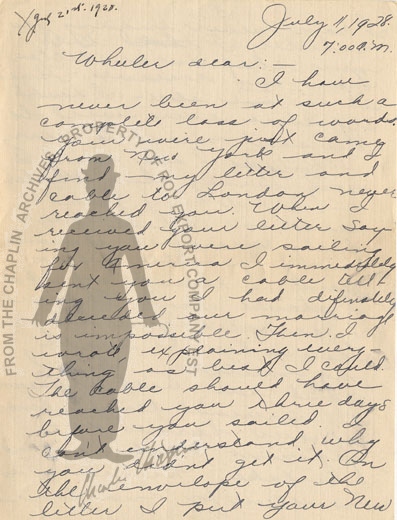 X July 21st. 1928.
July 11, 1928.
7:00 P.M.
Wheeler dear:-
I have
never been at such a
complete loss of words.
Your wire just came
from New York and I
find my letter and
cable to London never
reached you. When I
received your letter say-
ing you were sailing
for America I immediately
sent you a cable tell-
ing you I had definately
decided our marriage
is impossible. Then I
wrote explaining every-
thing as best I could.
The cable should have
reached you three days
before you sailed. I
can't understand why
you didn't get it. On
the envelope of the
letter I put your New
FROM THE CHAPLIN ARCHIVES PROPERTY OF ROY EXPORT COMPANY EST
Charlie Chaplin